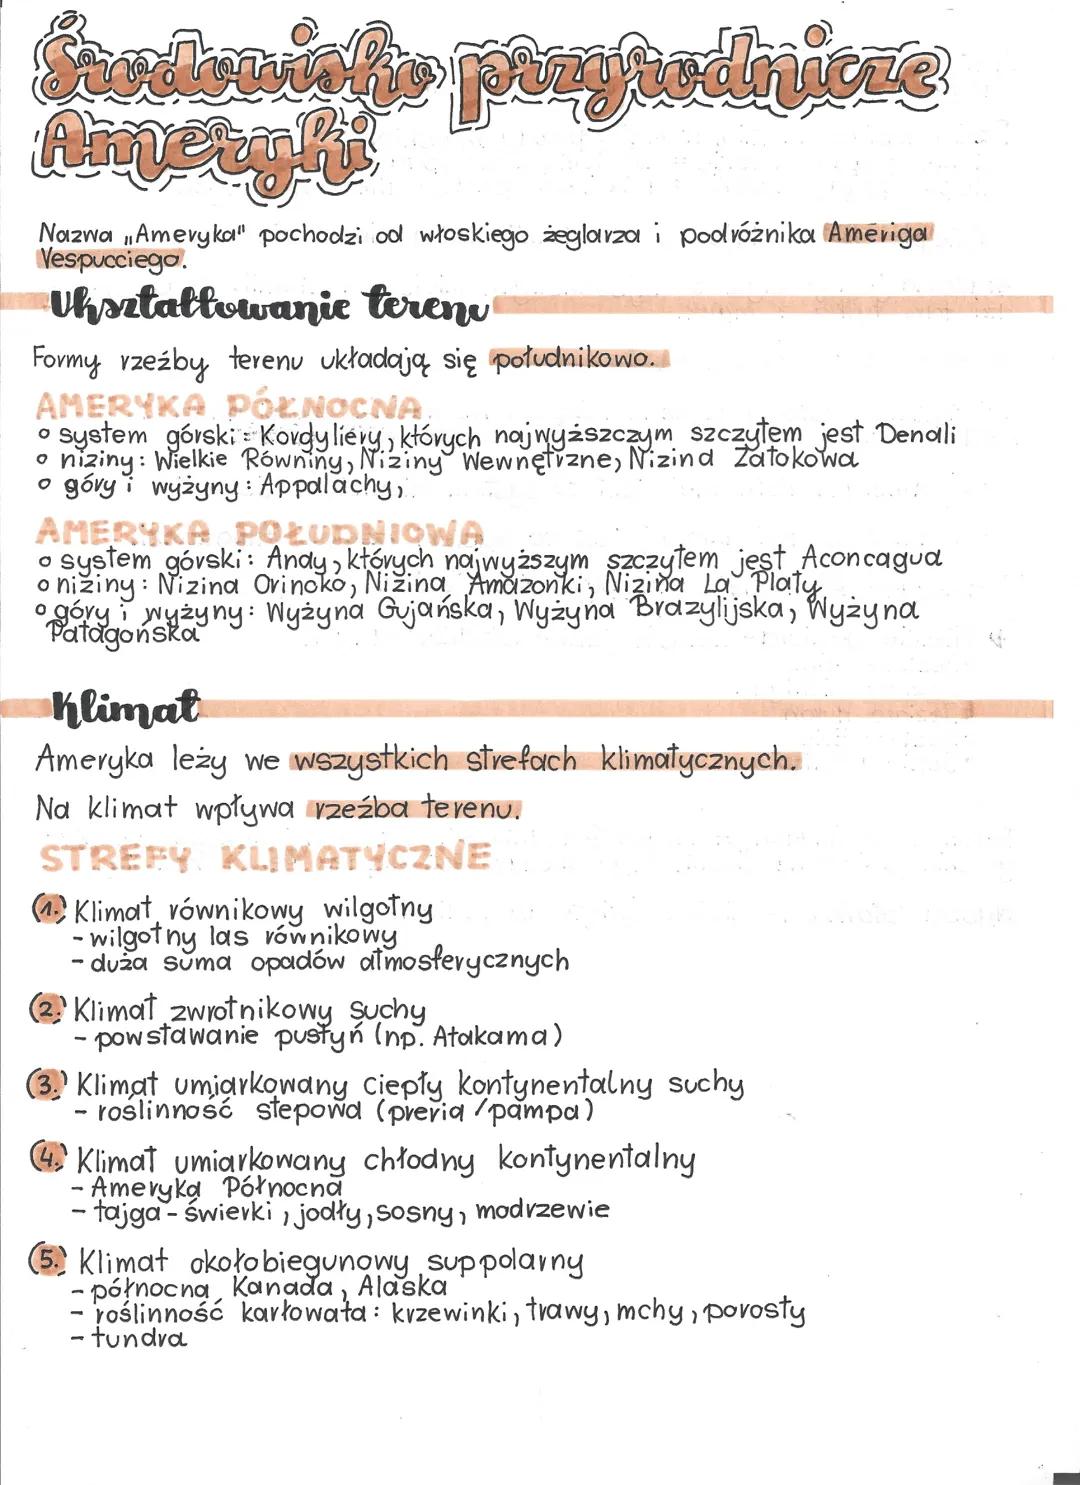 Środowisko przyrodnicze
Ameryki
Nazwa „Ameryka" pochodzi od włoskiego żeglarza i podróżnika Ameriga
Vespucciego.
Ukształtowanie terenu
Formy rzeźby terenu układają się południkowo.
AMERYKA PÓŁNOCNA
o system górski: Kordyliery, których najwyższczym szczytem jest Denali
o niziny: Wielkie Równiny, Niziny Wewnętrzne, Nizina Zatokowa
o góry i wyżyny: Appalachy,
AMERYKA POŁUDNIOWA
o system górski: Andy, których najwyższym szczytem jest Aconcagua
o niziny: Nizina Orinoko, Nizina Amazonki, Nizina La Platy
o góry i wyżyny: Wyżyna Gujańska, Wyżyna Brazylijska, Wyżyna
Patagońska
Klimat
Ameryka leży we wszystkich strefach klimatycznych.
Na klimat wpływa rzeźba terenu.
STREFY KLIMATYCZNE
1. Klimat równikowy wilgotny
- wilgotny las równikowy
- duża suma opadów atmosferycznych
2. Klimat zwrotnikowy suchy
- powstawanie pustyń (np. Atakama)
3. Klimat umiarkowany ciepły kontynentalny suchy
- roślinność stepowa (preria/pampa)
4. Klimat umiarkowany chłodny kontynentalny
- Ameryka Północna
- tajga - świerki, jodły, sosny, modrzewie
5. Klimat okołobiegunowy suppolarny
- północna Kanada, Alaska
- roślinność karłowata: krzewinki, trawy, mchy, porosty
- tundra